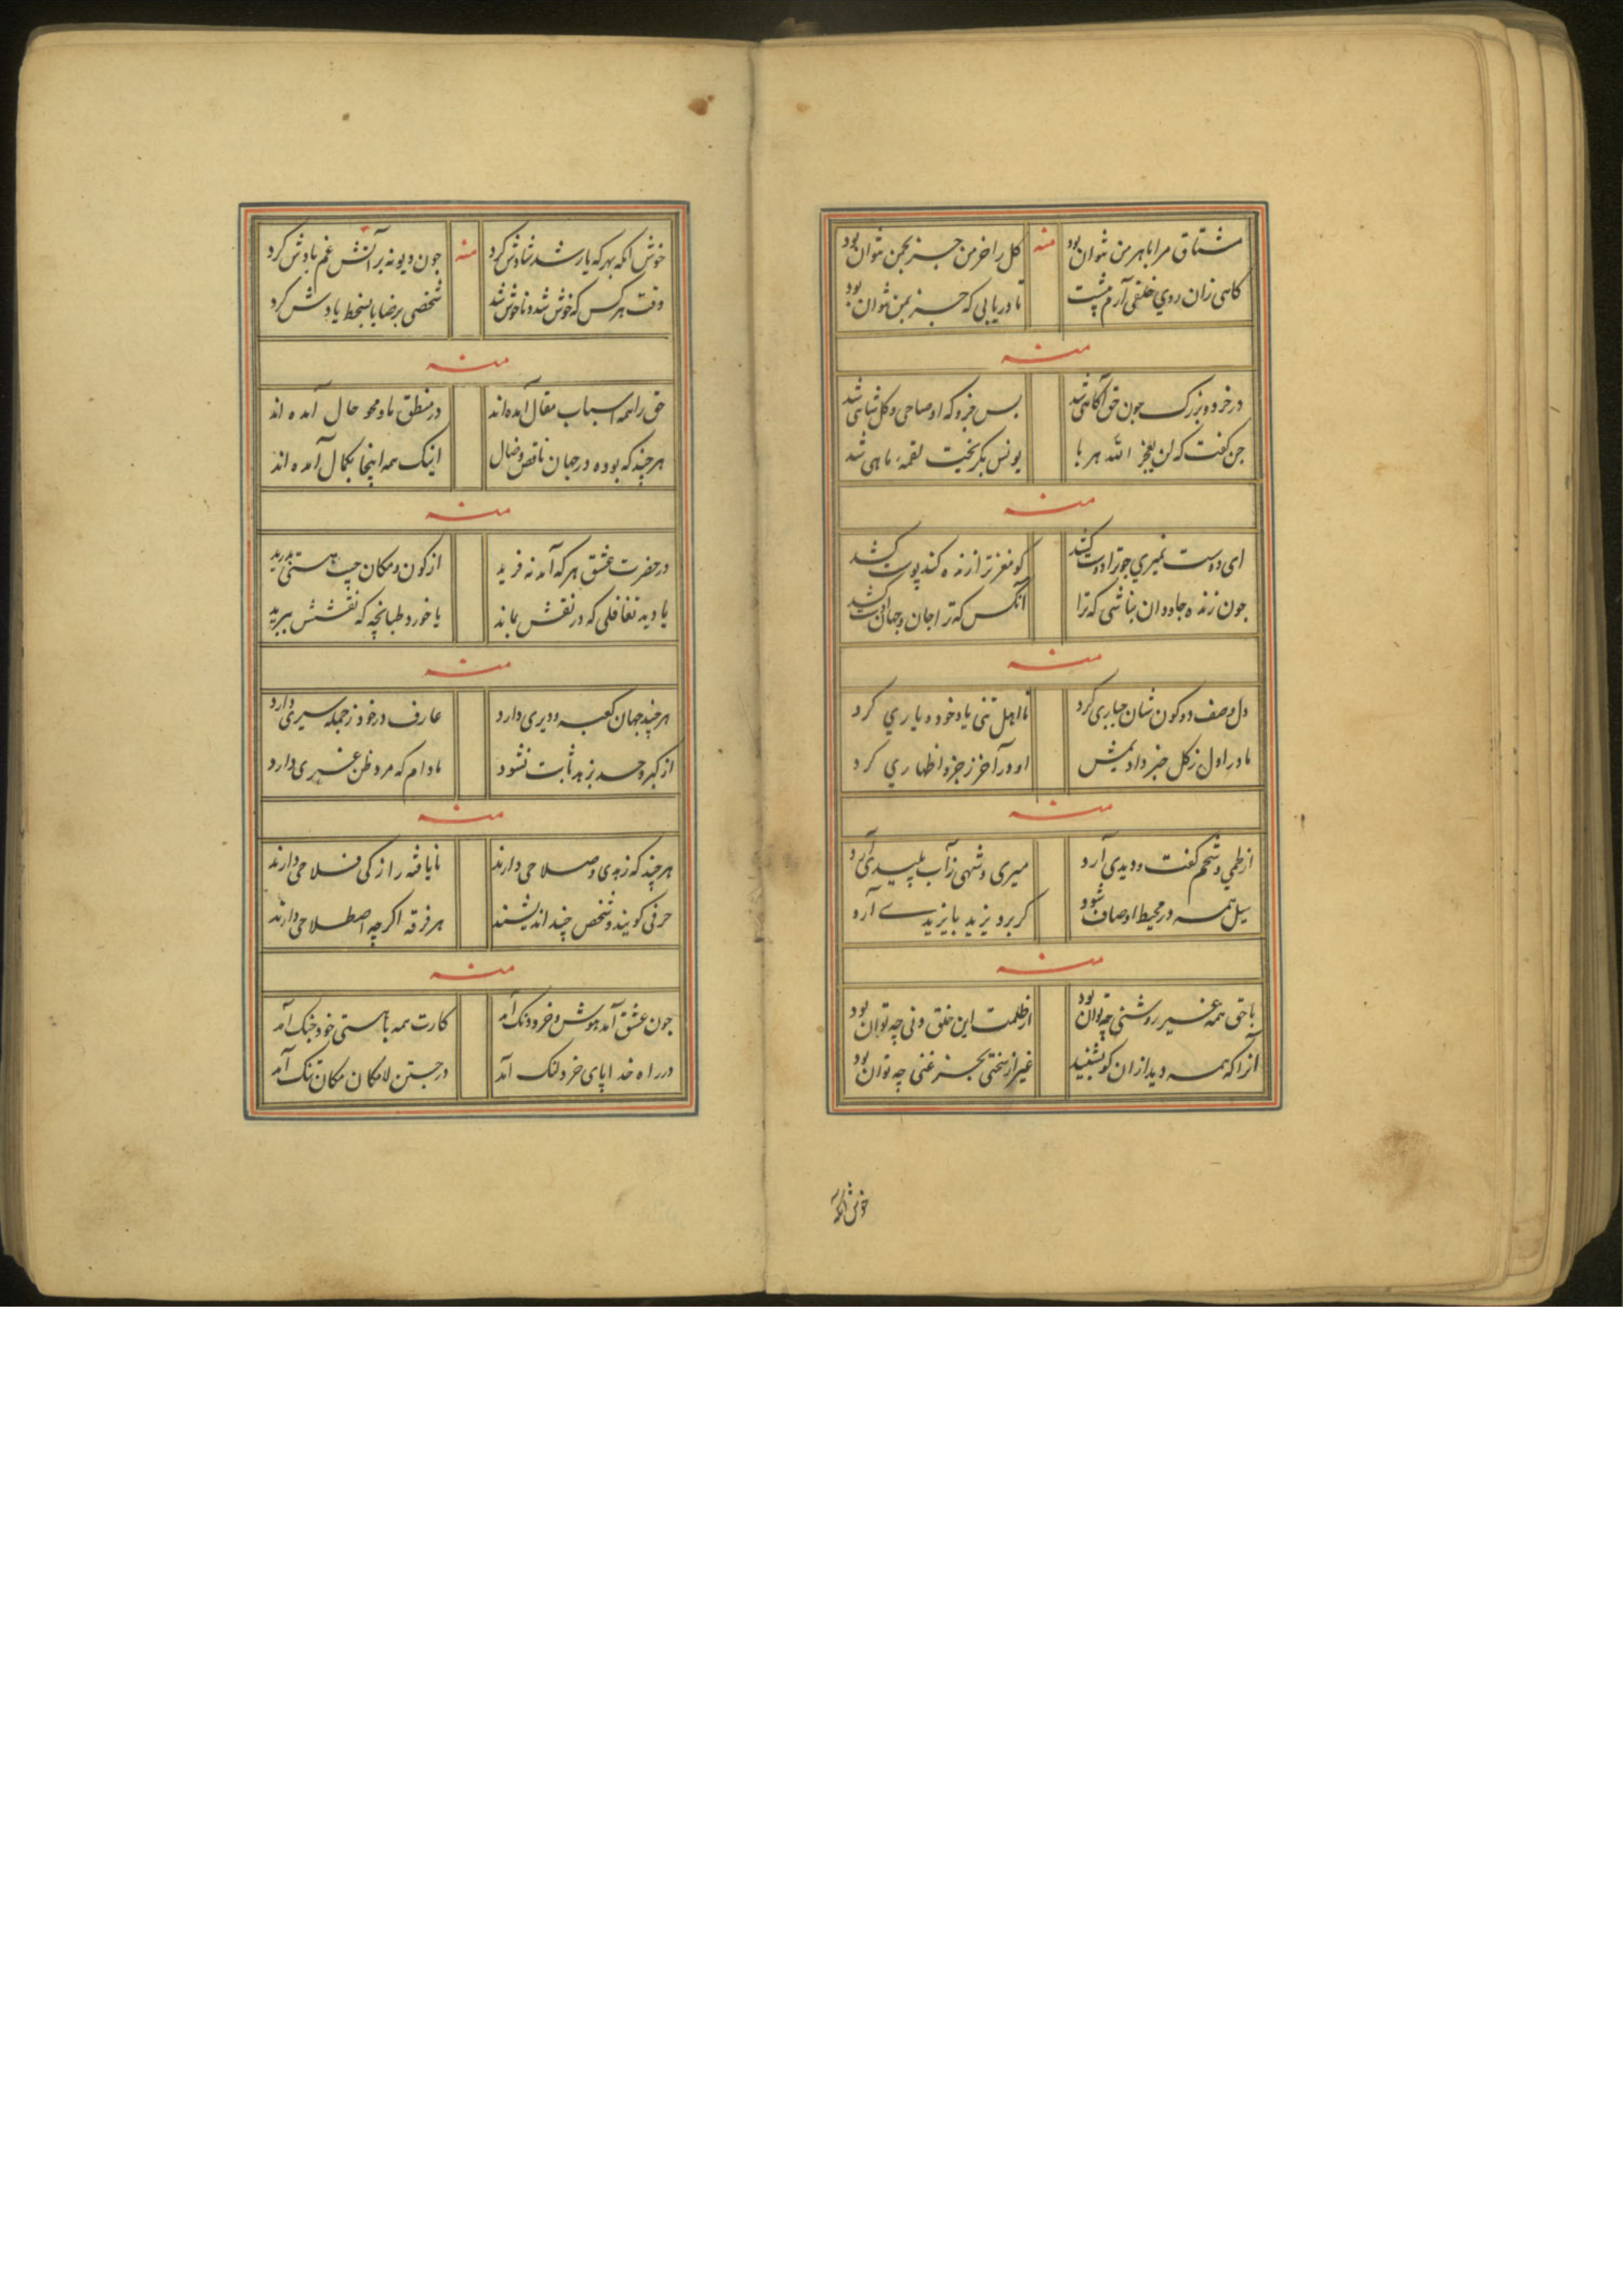 مشتاق مرا با هر من نتوان بود منه کل را خرمن جز بچمن نتوان بود
کاهی زان روی خلقی آرم پشت تا دریابی که جز بمن نتوان بود
منه
در خرد و بزرک چون حق آکاهی شد بس جزو که او صاحی و کل شاهی شد
جن کفت که لن یعجز الله هربا یونس بکریخت لقمهٔ ماهی شد
منه
ای دوست نمیری چو ترا دوست کشد کو مغز ترا زنده کند پوست کشد
چون زنده جاودان نباشی که ترا آنکس که ترا جان و جهان اوست کشد
منه
دل وصف دو کون شان جباری کرد تا اهل تنی یاد خود و یاری کرد
ما در اول ز کل خبر دادیمش او در آخر ز جزو اظهاری کرد
منه
از طمی و شحم کفت و دیدی آرد میری و شهی ز آب پلیدی آرد
سیل همه در محیط او صاف شود کر برد یزید بایزیدی آرد
منه
با حق همه غیر روشنی چه توان بود از ظلمت این خلق دنی چه توان بود
آنرا که همه دید ازان کو بشنید غیر از سختی بجز غنی چه توان بود
خوش آنکه
خوش آنکه بهر که یار شد شادش کرد منه چون دیو نه بر آتش غم بادش کرد
وقت هر کس که خوش شد و ناخوش شد شخصی برضا یا بسخط یادش کرد
منه
حق را همه اسباب مقال آمده اند در منطق ما و محو حال آمده اند
هر چند که بوده در جهان ناقص و ضال اینک همه اینجا بکمال آمده اند
منه
در حضرت عشق هر که آمد نه فرید از کون و مکان جیب هستی بدرید
یا دید تغافلی که در نقش بماند یا خورد طبانچه که نقشش ببرید
منه
هر چند جهان کعبه و دیری دارد عارف در خود ز جمله سیری دارد
از کبر و حسد بزهد ثابت نشود مادام که مرد ظن غیری دارد
منه
هر چند که زهدی و صلاحی دارند نایافته راز کی فلاحی دارند
حرفی کویند و شخص چند اندیشند هر فرقه اکر چه اصطلاحی دارند
منه
چون عشق آمد هوش و خرد دنک آمد کارت همه با هستی خود جنک آمد
در راه خدا پای خرد لنک آمد در جستن لامکان مکان تنک آمد